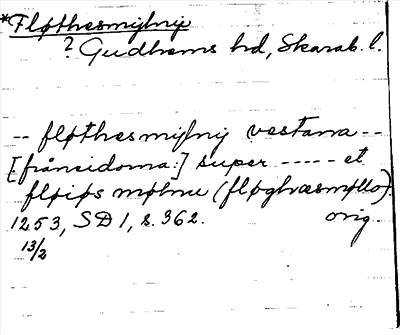 *Fløthesmylny
? Gudhems hd, Skarab. l.
-- fløthesmylny vestarra --
[frånsidorna:] super ----- et
fløiøs mølnu (fløghræsmøllo).
1253, SD 1, s. 362. orig.
13/2